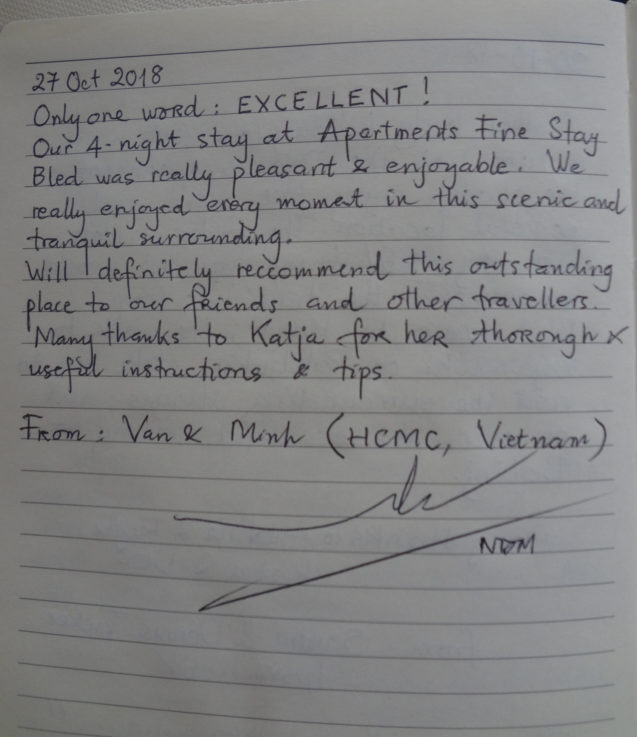 27 Oct 2018
Only one word : EXCELLENT !
Our 4-night stay at Apartments Fine Stay
Bled was really pleasant & enjoyable. We
really enjoyed every momet in this scenic and
tranquil surrounding.
Will definitely reccommend this outstanding
place to our friends and other travellers.
Many thanks to Katja for her thorough &
useful instructions & tips.
From : Van & Minh (HCMC, Vietnam)
NDM